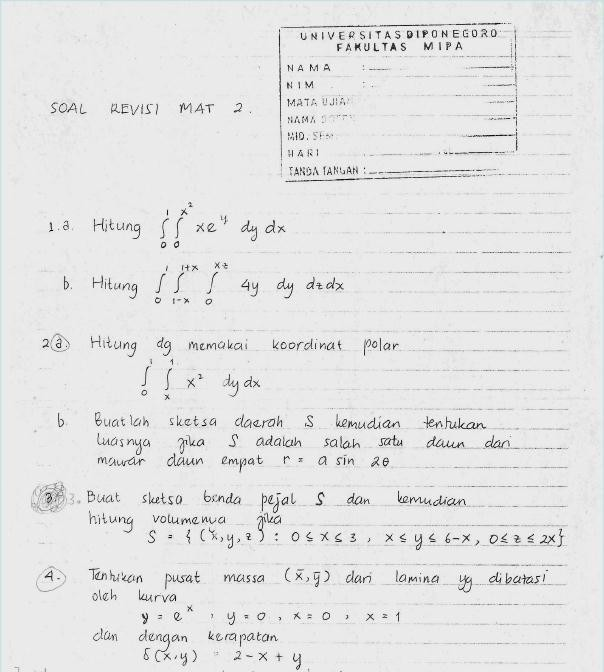 UNIVERSITAS DIPONEGORO
FAKULTAS MIPA
NAMA :
NIM :
MATA UJIAN
NAMA
MID. SEM
HARI
TANDA TANGAN :
SOAL REVISI MAT 2.
1.a. Hitung ∫₀¹ ∫₀^{x²} xe^y dy dx
b. Hitung ∫₀¹ ∫_{1-x}^{1+x} ∫₀^{xz} 4y dy dz dx
2 a. Hitung dg memakai koordinat polar
∫₀¹ ∫ₓ¹ x² dy dx
b. Buatlah sketsa daerah S kemudian tentukan
luasnya jika S adalah salah satu daun dari
mawar daun empat r = a sin 2θ
3. Buat sketsa benda pejal S dan kemudian
hitung volumenya jika
S = { (x, y, z) : 0 ≤ x ≤ 3 , x ≤ y ≤ 6-x, 0 ≤ z ≤ 2x}
4. Tentukan pusat massa (x̄, ȳ) dari lamina yg dibatasi
oleh kurva
y = e^x , y = 0 , x = 0 , x = 1
dan dengan kerapatan
δ(x,y) = 2 - x + y